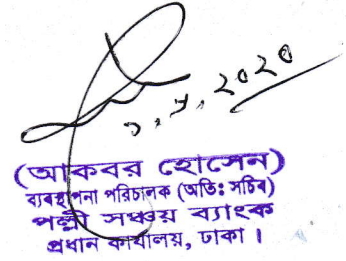 ২০২০
(আকবর হোসেন)
ব্যবস্থাপনা পরিচালক (অতিঃ সচিব)
পল্লী সঞ্চয় ব্যাংক
প্রধান কার্যালয়, ঢাকা।